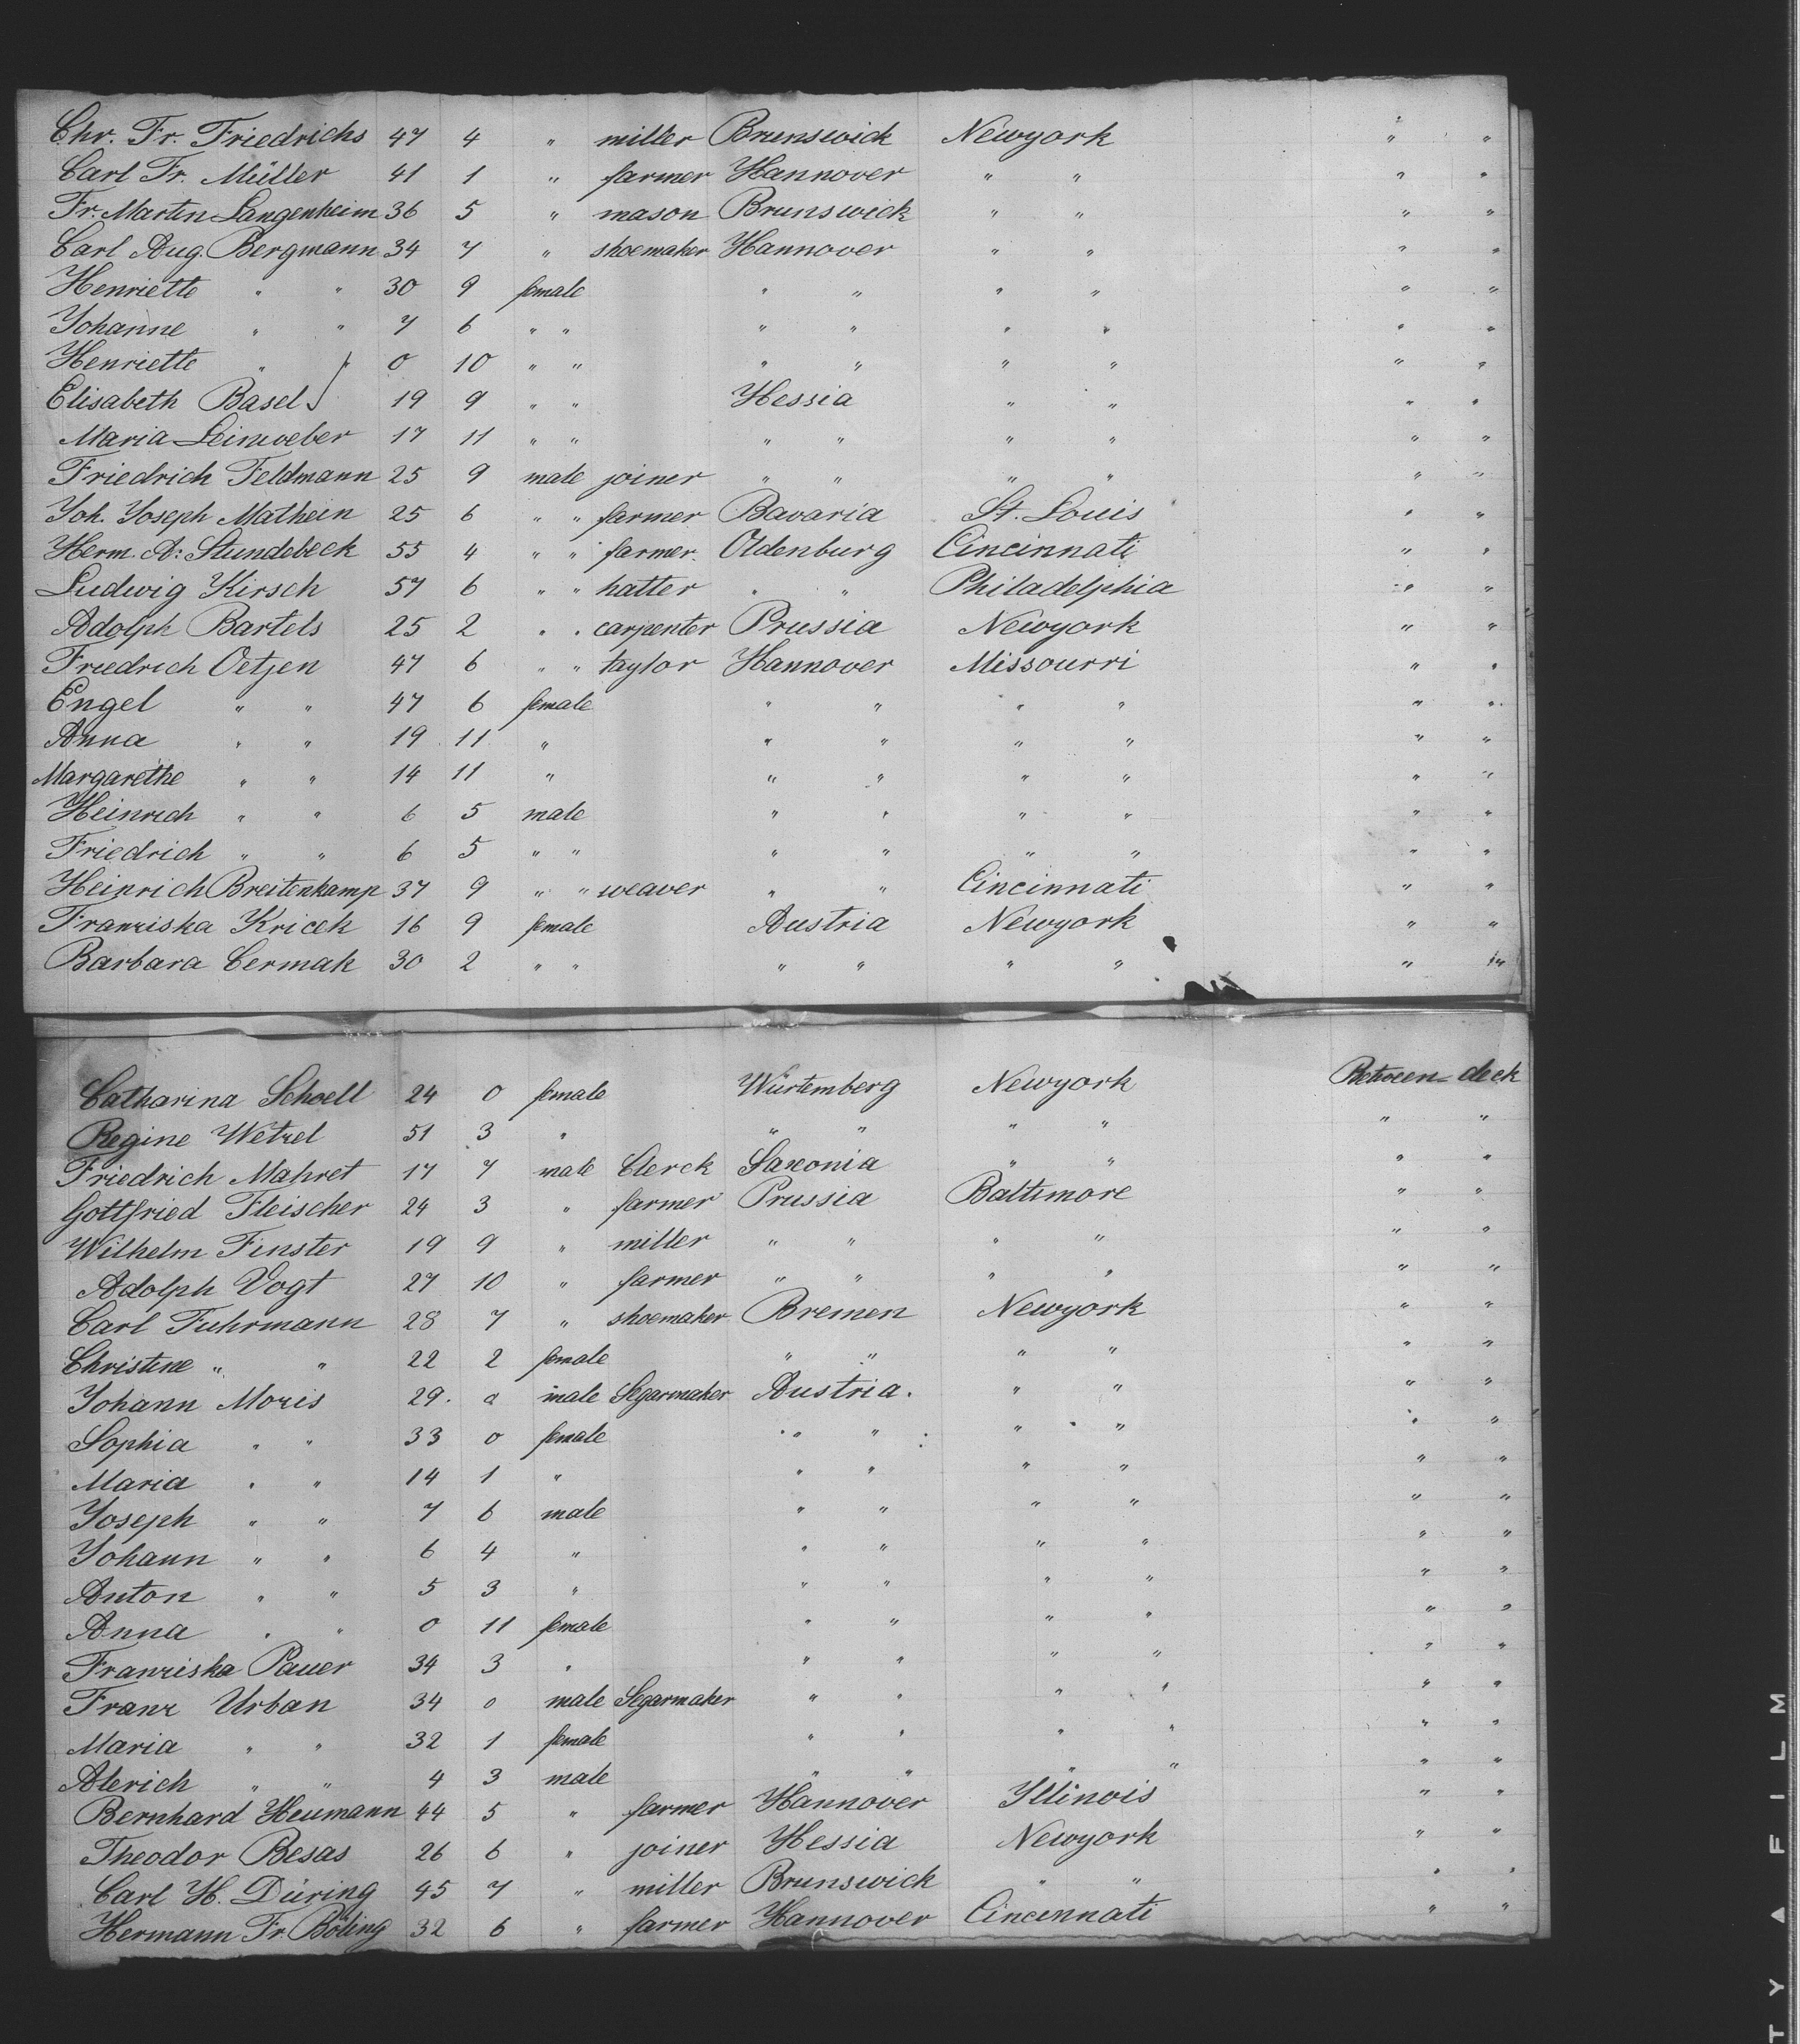 Chr. Fr. Friedrichs 47 4 " miller Brunswick Newyork " "
Carl Fr. Müller 41 1 " farmer Hannover " " " "
Fr. Martin Langenheim 36 5 " mason Brunswick " " " "
Carl Aug. Bergmann 34 7 " shoemaker Hannover " " " "
Henriette " " 30 9 female " " " " " "
Johanne " " 7 6 " " " " " " " "
Henriette " " 0 10 " " " " " " " "
Elisabeth Basel 19 9 " " Hessia " " " "
Maria Leinweber 17 11 " " " " " " " "
Friedrich Feldmann 25 9 male joiner " " " " " "
Joh. Joseph Mathein 25 6 " " farmer Bavaria St. Louis " "
Herm. A: Stundebeck 55 4 " " farmer. Oldenburg Cincinnati " "
Ludwig Kirsch 57 6 " " hatter " " Philadelphia " "
Adolph Bartels 25 2 " " carpenter Prussia Newyork " "
Friedrich Oetjen 47 6 " " taylor Hannover Missourri " "
Engel " " 47 6 female " " " " " "
Anna " " 19 11 " " " " " " "
Margarethe " " 14 11 " " " " " " "
Heinrich " " 6 5 male " " " " " "
Friedrich " " 6 5 " " " " " " " "
Heinrich Breitenkamp 37 9 " " weaver " " Cincinnati " "
Franziska Kricek 16 9 female Austria Newyork " "
Barbara Cermak 30 2 " " " " " " " "
Catharina Schoell 24 0 female Würtemberg Newyork Between-deck
Regine Wetzel 51 3 " " " " " " "
Friedrich Mahret 17 7 male Clerck Saxonia " " " "
Gottfried Fleischer 24 3 " farmer Prussia Baltimore " "
Wilhelm Finster 19 9 " miller " " " " " "
Adolph Vogt 27 10 " farmer " " " " " "
Carl Fuhrmann 28 7 " shoemaker Bremen Newyork " "
Christine " " 22 2 female " " " " " "
Johann Moris 29. male Segarmaker Austria. " " " "
Sophia " " 33 0 female " " " " " "
Maria " " 14 1 " " " " " " "
Joseph " " 7 6 male " " " " " "
Johann " " 6 4 " " " " " " "
Anton " " 5 3 " " " " " " "
Anna " " 0 11 female " " " " " "
Franziska Pauer 34 3 " " " " " " "
Franz Urban 34 0 male Segarmaker " " " " " "
Maria " " 32 1 female " " " " " "
Alerich " " 4 3 male " " " " " "
Bernhard Heumann 44 5 " farmer Hannover Illinois " "
Theodor Besas 26 6 " joiner Hessia Newyork " "
Carl H. Düring 45 7 " miller Brunswick " " " "
Hermann Fr. Böling 32 6 " farmer Hannover Cincennati " "
TY ▲ FILM